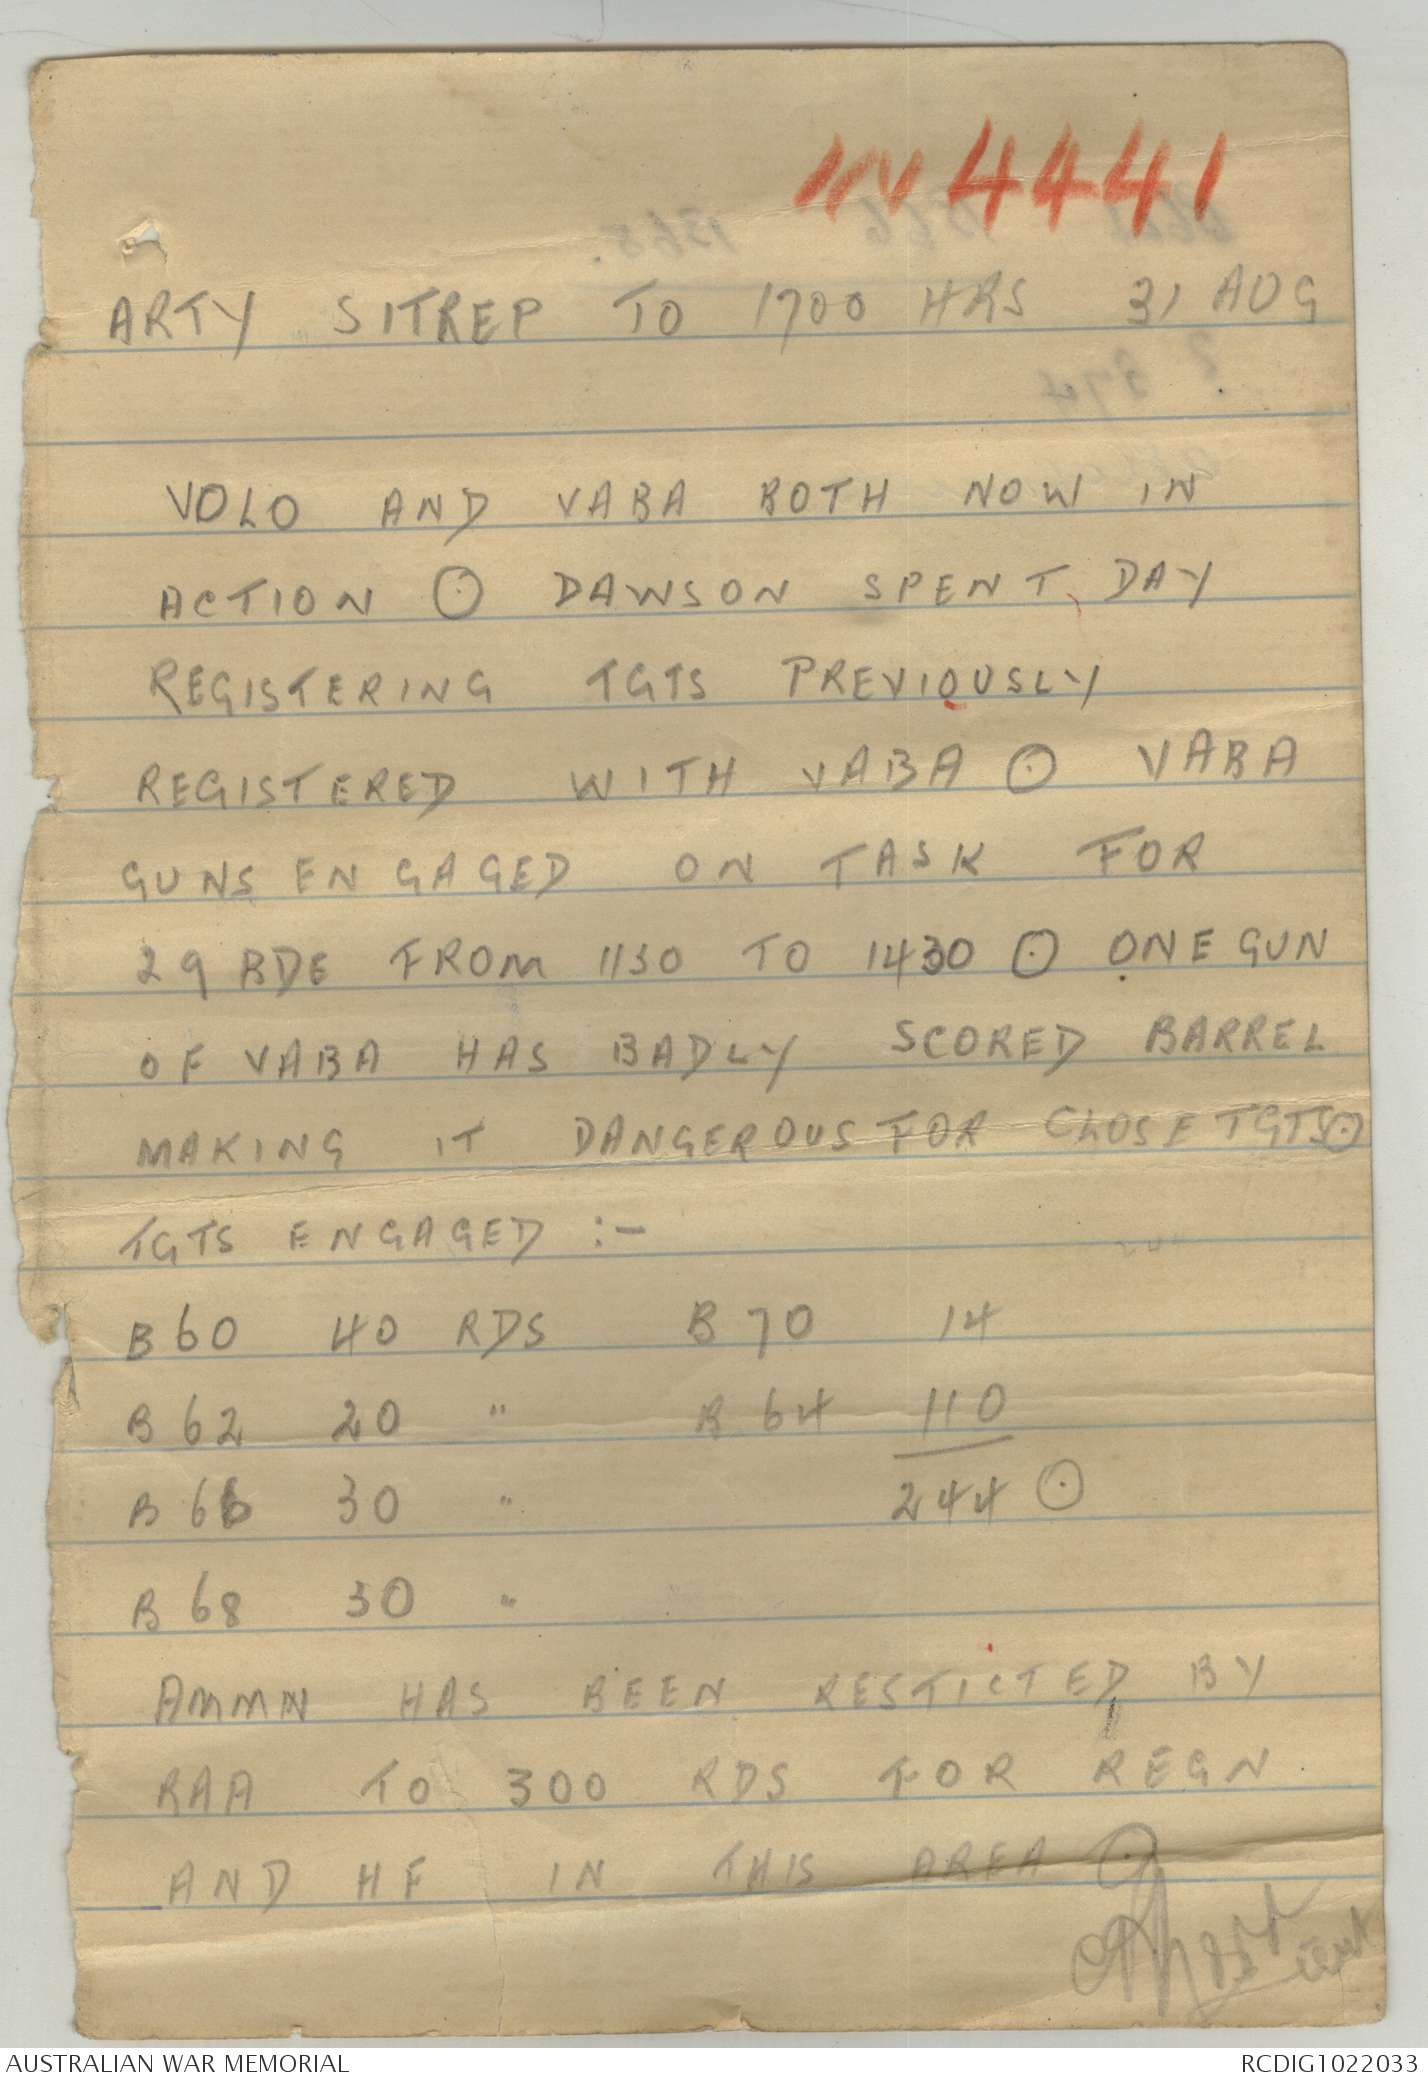 4441
ARTY SITREP TO 1700 HRS 31 AUG
VOLO AND VABA BOTH NOW IN
ACTION ⊙ DAWSON SPENT DAY
REGISTERING TGTS PREVIOUSLY
REGISTERED WITH VABA ⊙ VABA
GUNS ENGAGED ON TASK FOR
29 BDE FROM 1130 TO 1430 ⊙ ONE GUN
OF VABA HAS BADLY SCORED BARREL
MAKING IT DANGEROUS FOR CLOSE TGTS ⊙
TGTS ENGAGED :-
B 60 40 RDS B 70 14
B 62 20 " B 64 110
B 66 30 " 244 ⊙
B 68 30 "
AMMN HAS BEEN RESTICTED BY
RAA TO 300 RDS FOR REGN
AND HF IN THIS AREA ⊙
Lieut
AUSTRALIAN WAR MEMORIAL RCDIG1022033